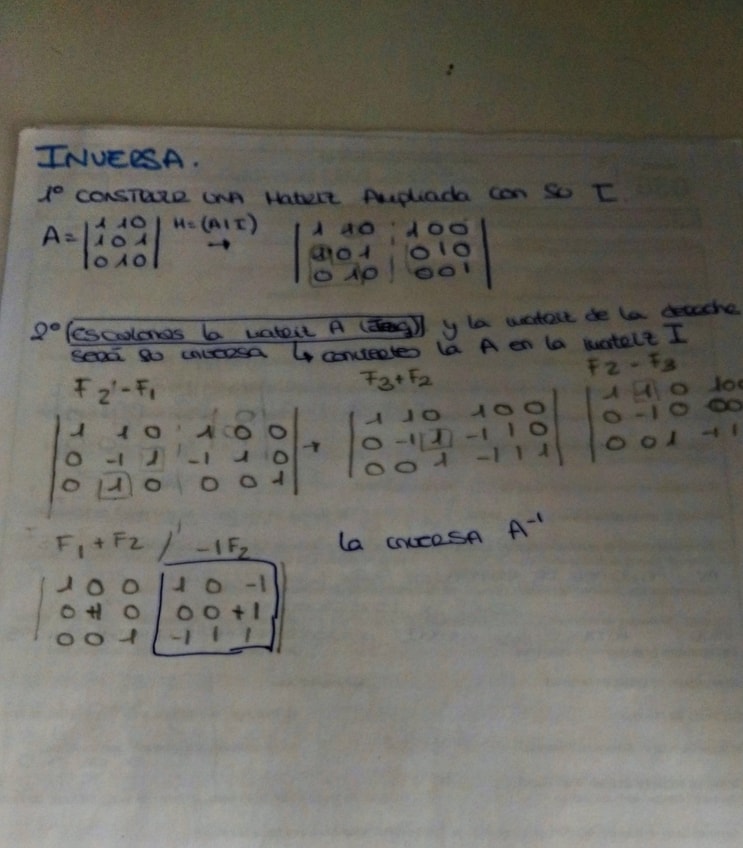 INVERSA.
1º CONSTRUIR UNA Matriz Ampliada con su I
A= |1 1 0| M=(A|I) |1 1 0 | 1 0 0|
|1 0 1| → |1 0 1 | 0 1 0|
|0 1 0| |0 1 0 | 0 0 1|
2º (escalonas la matriz A) y la matriz de la derecha
será su inversa ↳ conviertes la A en la matriz I
F2 - F1 F3+F2 F2 - F3
|1 1 0 1 0 0| |1 1 0 1 0 0| |1 1 0 1 0 0
|0 -1 1 -1 1 0| → |0 -1 1 -1 1 0| |0 -1 0 0 0
|0 1 0 0 0 1| |0 0 1 -1 1 1| |0 0 1 -1 1
F1 + F2 / -1F2 la inversa A⁻¹
|1 0 0 1 0 -1|
|0 +1 0 0 0 +1|
|0 0 1 -1 1 1|